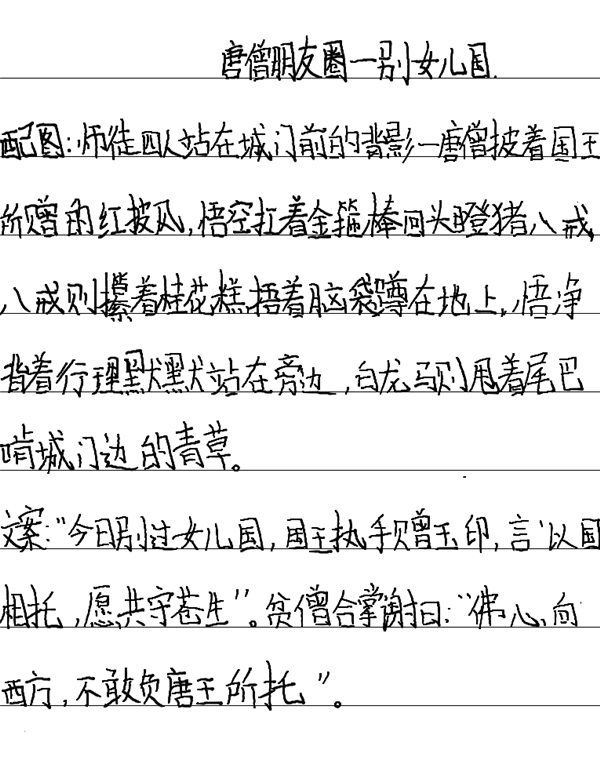 唐僧朋友圈一别女儿国.
配图:师徒四人站在城门前的背影一唐僧披着国王
所赠的红披风,悟空扛着金箍棒回头瞪猪八戒,
八戒则攥着桂花糕捂着脑袋蹲在地上,悟净
背着行理默默站在旁边,白龙马则甩着尾巴
啃城门边的青草。
文案:“今日别过女儿国,国王执手赠玉印,言‘以国
相托,愿共守苍生’”。贫僧合掌谢曰:“佛心向
西方,不敢负唐王所托”。